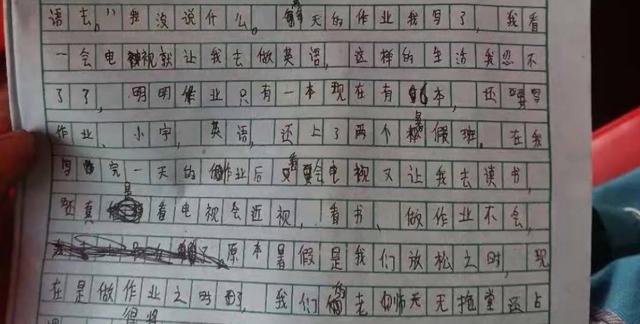 语去。"我没说什么。每天的作业我写了，我看
一会电视就让我去做英语，这样的生活我忍不
了了，明明作业只有一本现在有6本，还要写
作业、小字，英语，还上了两个暑假班。在我
写完一天的作业后要看会电视又让我去读书，
还真是看电视会近视，看书、做作业不会，
原本暑假是我们放松之时，现
在是做作业之时了，我们的老师天天拖堂还占